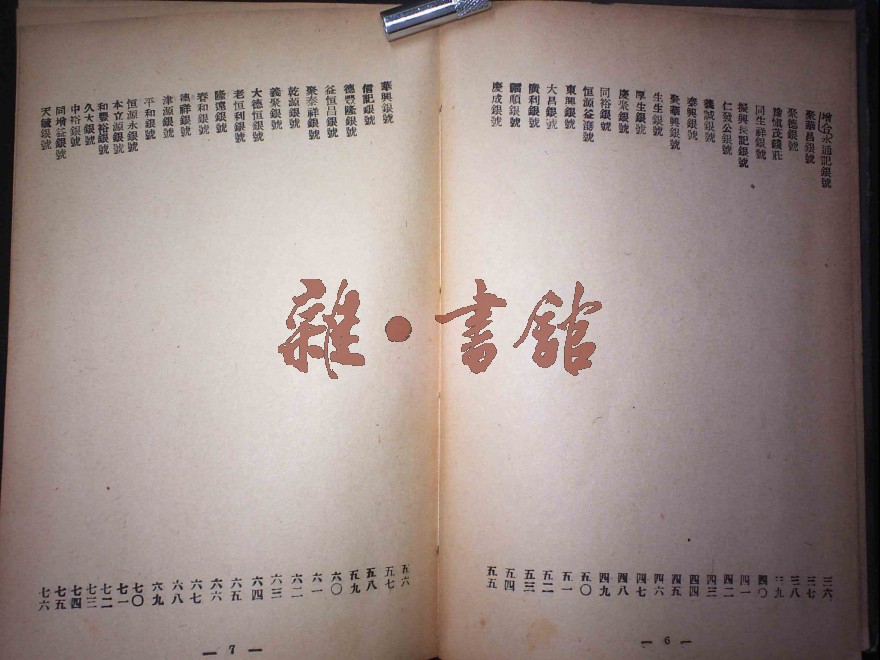 增合永通記銀號 三六
聚華昌銀號 三七
聚德銀號 三八
豫慎茂錢莊 三九
同生祥銀號 四〇
振興長記銀號 四一
仁發公銀號 四二
義誠銀號 四三
泰興銀號 四四
聚華興銀號 四五
生生銀號 四六
厚生銀號 四七
慶聚銀號 四八
同裕銀號 四九
恒源益號 五〇
東興銀號 五一
大昌銀號 五二
廣利銀號 五三
順銀號 五四
慶成銀號 五五
— 6 —
華興銀號 五六
信記銀號 五七
德豐隆銀號 五八
益恒昌銀號 五九
聚泰祥銀號 六〇
乾源銀號 六一
義聚銀號 六二
大德恒銀號 六三
老恒利銀號 六四
隆遠銀號 六五
春和銀號 六六
祥銀號 六七
津源銀號 六八
平和銀號 六九
恒源永銀號 七〇
本立源銀號 七一
和豐裕銀號 七二
久大銀號 七三
中裕銀號 七四
同增益銀號 七五
天銀號 七六
— 7 —
雜·書館